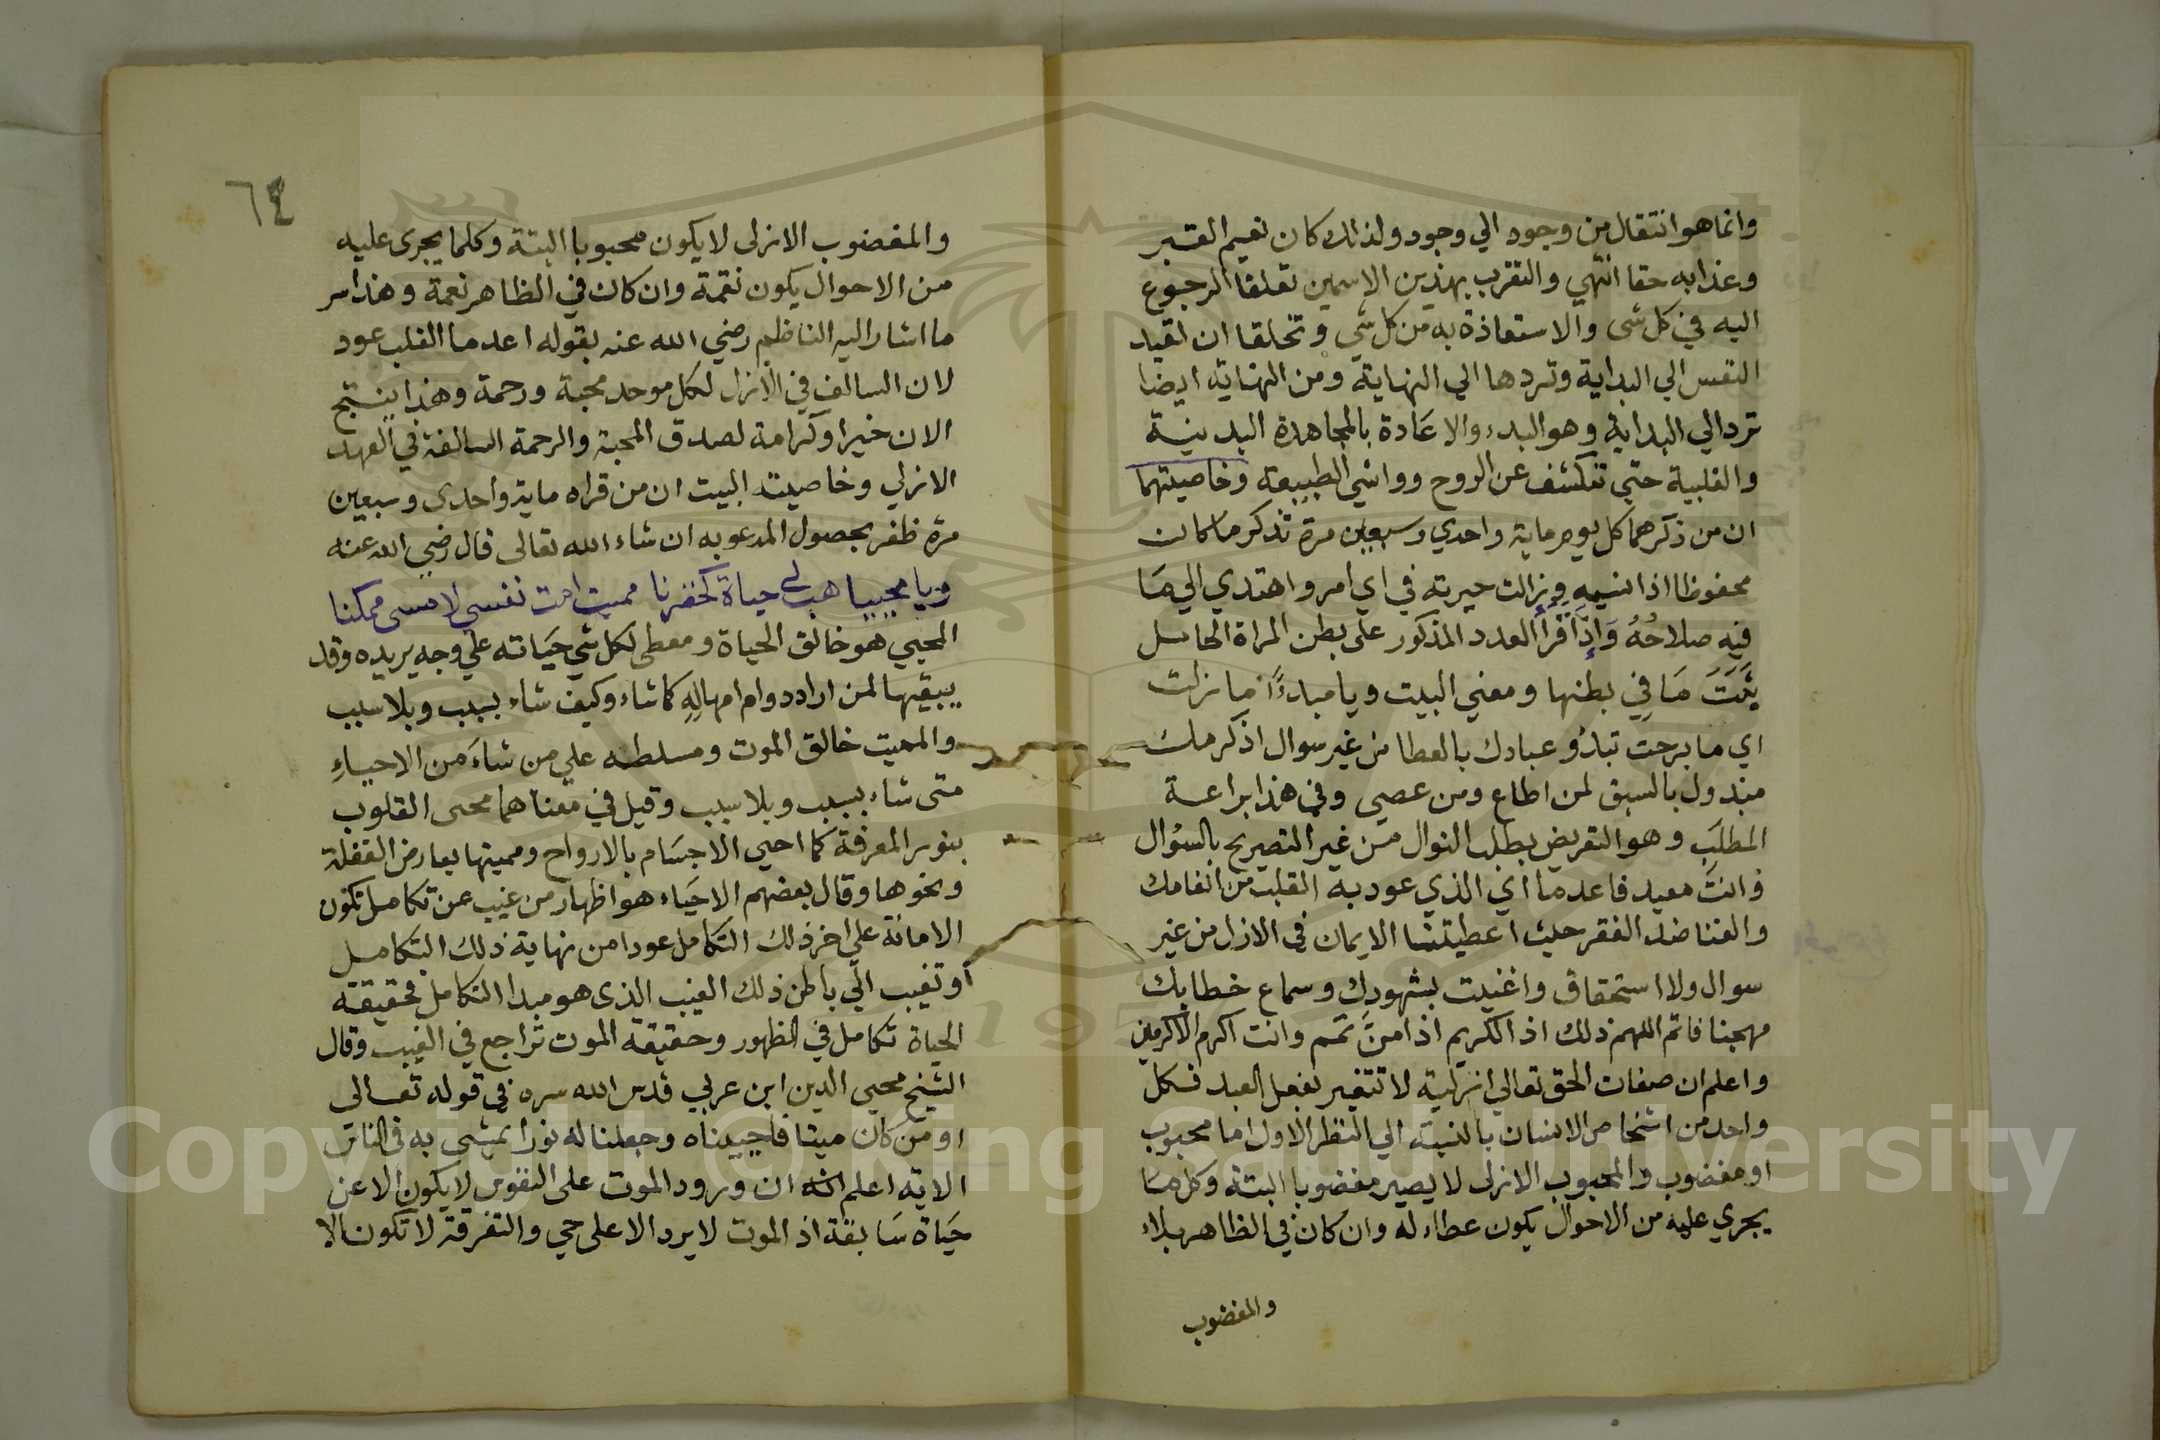 وانما هو انتقال من وجود الي وجود ولذلك كان نعيم القبر
وعذابه حقا انتهي والتقرب بهذين الاسمين تعلقا الرجوع
اليه في كل شي والاستعاذة به من كل شي وتخلقا ان تعيد
النفس الي البداية وتردها الي النهاية ومن النهاية ايضا
ترد الي البداية وهو البدء والاعادة بالمجاهدة البدنية
والقلبية حتي تنكشف عن الروح وواشي الطبيعة وخاصيتهما
ان من ذكرهما كل يوم ماية واحدي وسبعين مرة تذكر ما كان
محفوظا اذا نسيه وزالت حيرته في اي امر واهتدي الي ما
فيه صلاحُهُ وَاِذَا قرأ العدد المذكور على بطن المراة الحامل
يَثْبَتَ مَا فِي بطنها ومعني البيت ويا مبدءًا ما زلت
اي ما برحت تبدُو عبادك بالعطا من غير سوال اذ كرمك
مبذول بالسبق لمن اطاع ومن عصي وفي هذا براعة
المطلَبِ وهو التعريض بطلب النوال من غير التصريح بالسُوال
وانتَ معيد فاعدما اي الذي عود به القلب من انعامك
والغنا ضد الفقر حيث اعطيتنا الايمان في الازل من غير
سوال ولا استحقاق واغنيت بشهودك وسماع خطابك
مهجنا فاتم اللهم ذلك اذ الكريم اذا منَّ تمم وانت اكرم الاكرمين
واعلم ان صفات الحق تعالي ازلية لا تتغير بفعل العبد فكل
واحد من اشخاص الانسان بالنسبة الي النظر الاول اما محبوب
او مغضوب والمحبوب الازلى لا يصير مغضوبا البتة وكل ما
يجري عليه من الاحوال يكون عطاء له وان كان في الظاهر بلاء
والمغضوب
٦٤
والمغضوب الازلى لا يكون محبوبا البتة وكلما يجرى عليه
من الاحوال يكون نقمة وان كان في الظاهر نعمة وهذا سر
ما اشار اليه الناظم رضي الله عنه بقوله اعدما القلب عود
لان السالف في الازل لكل موحد محبة ورحمة وهذا ينتج
الان خيرا وكرامة لصدق المحبة والرحمة السالفة في العهد
الازلي وخاصيته البيت ان من قراه ماية واحدى وسبعين
مرة ظفر بحصول المدعو به ان شاء الله تعالى قال رضي الله عنه
ويا محييا هب لي حياة كخضرنا مميت امت نفسي لامسى ممكنا
المحيي هو خالق الحياة ومعطي لكل شي حَياته علي وجه يريده وقد
يبقيها لمن اراد دوام امهالِهِ كما شاء وكيف شاء بسبب وبلا سبب
والمميت خالق الموت ومسلطه علي من شاءَ من الاحياءِ
متى شاء بسبب وبلا سبب وقيل في معناهما محى القلوب
بنور المعرفة كما احيي الاجسَام بالارواح ومميتها بعارض الغفلة
ونحوها وقال بعضهم الاحيَاء هو اظهار من غيب عن تكامل تكون
الاماتة علي اخر ذلك التكامل عودا من نهاية ذلك التكامل
او تغيب الي باطن ذلك الغيب الذى هو مبدا التكامل فحقيقة
الحياة تكامل في الظهور وحقيقة الموت تراجع في الغيب وقال
الشيخ محيي الدين ابن عربي قدس الله سره في قوله تعالى
اومن كان ميتا فاحييناه وجعلنا له نورا يمشي به في الناس
الاية اعلم انه ان ورود الموت على النفوس لا يكون الا عن
حَياة سَابقة اذ الموت لا يرد الا على حي والتفرقة لا تكون الا
Copyright © King Saud University